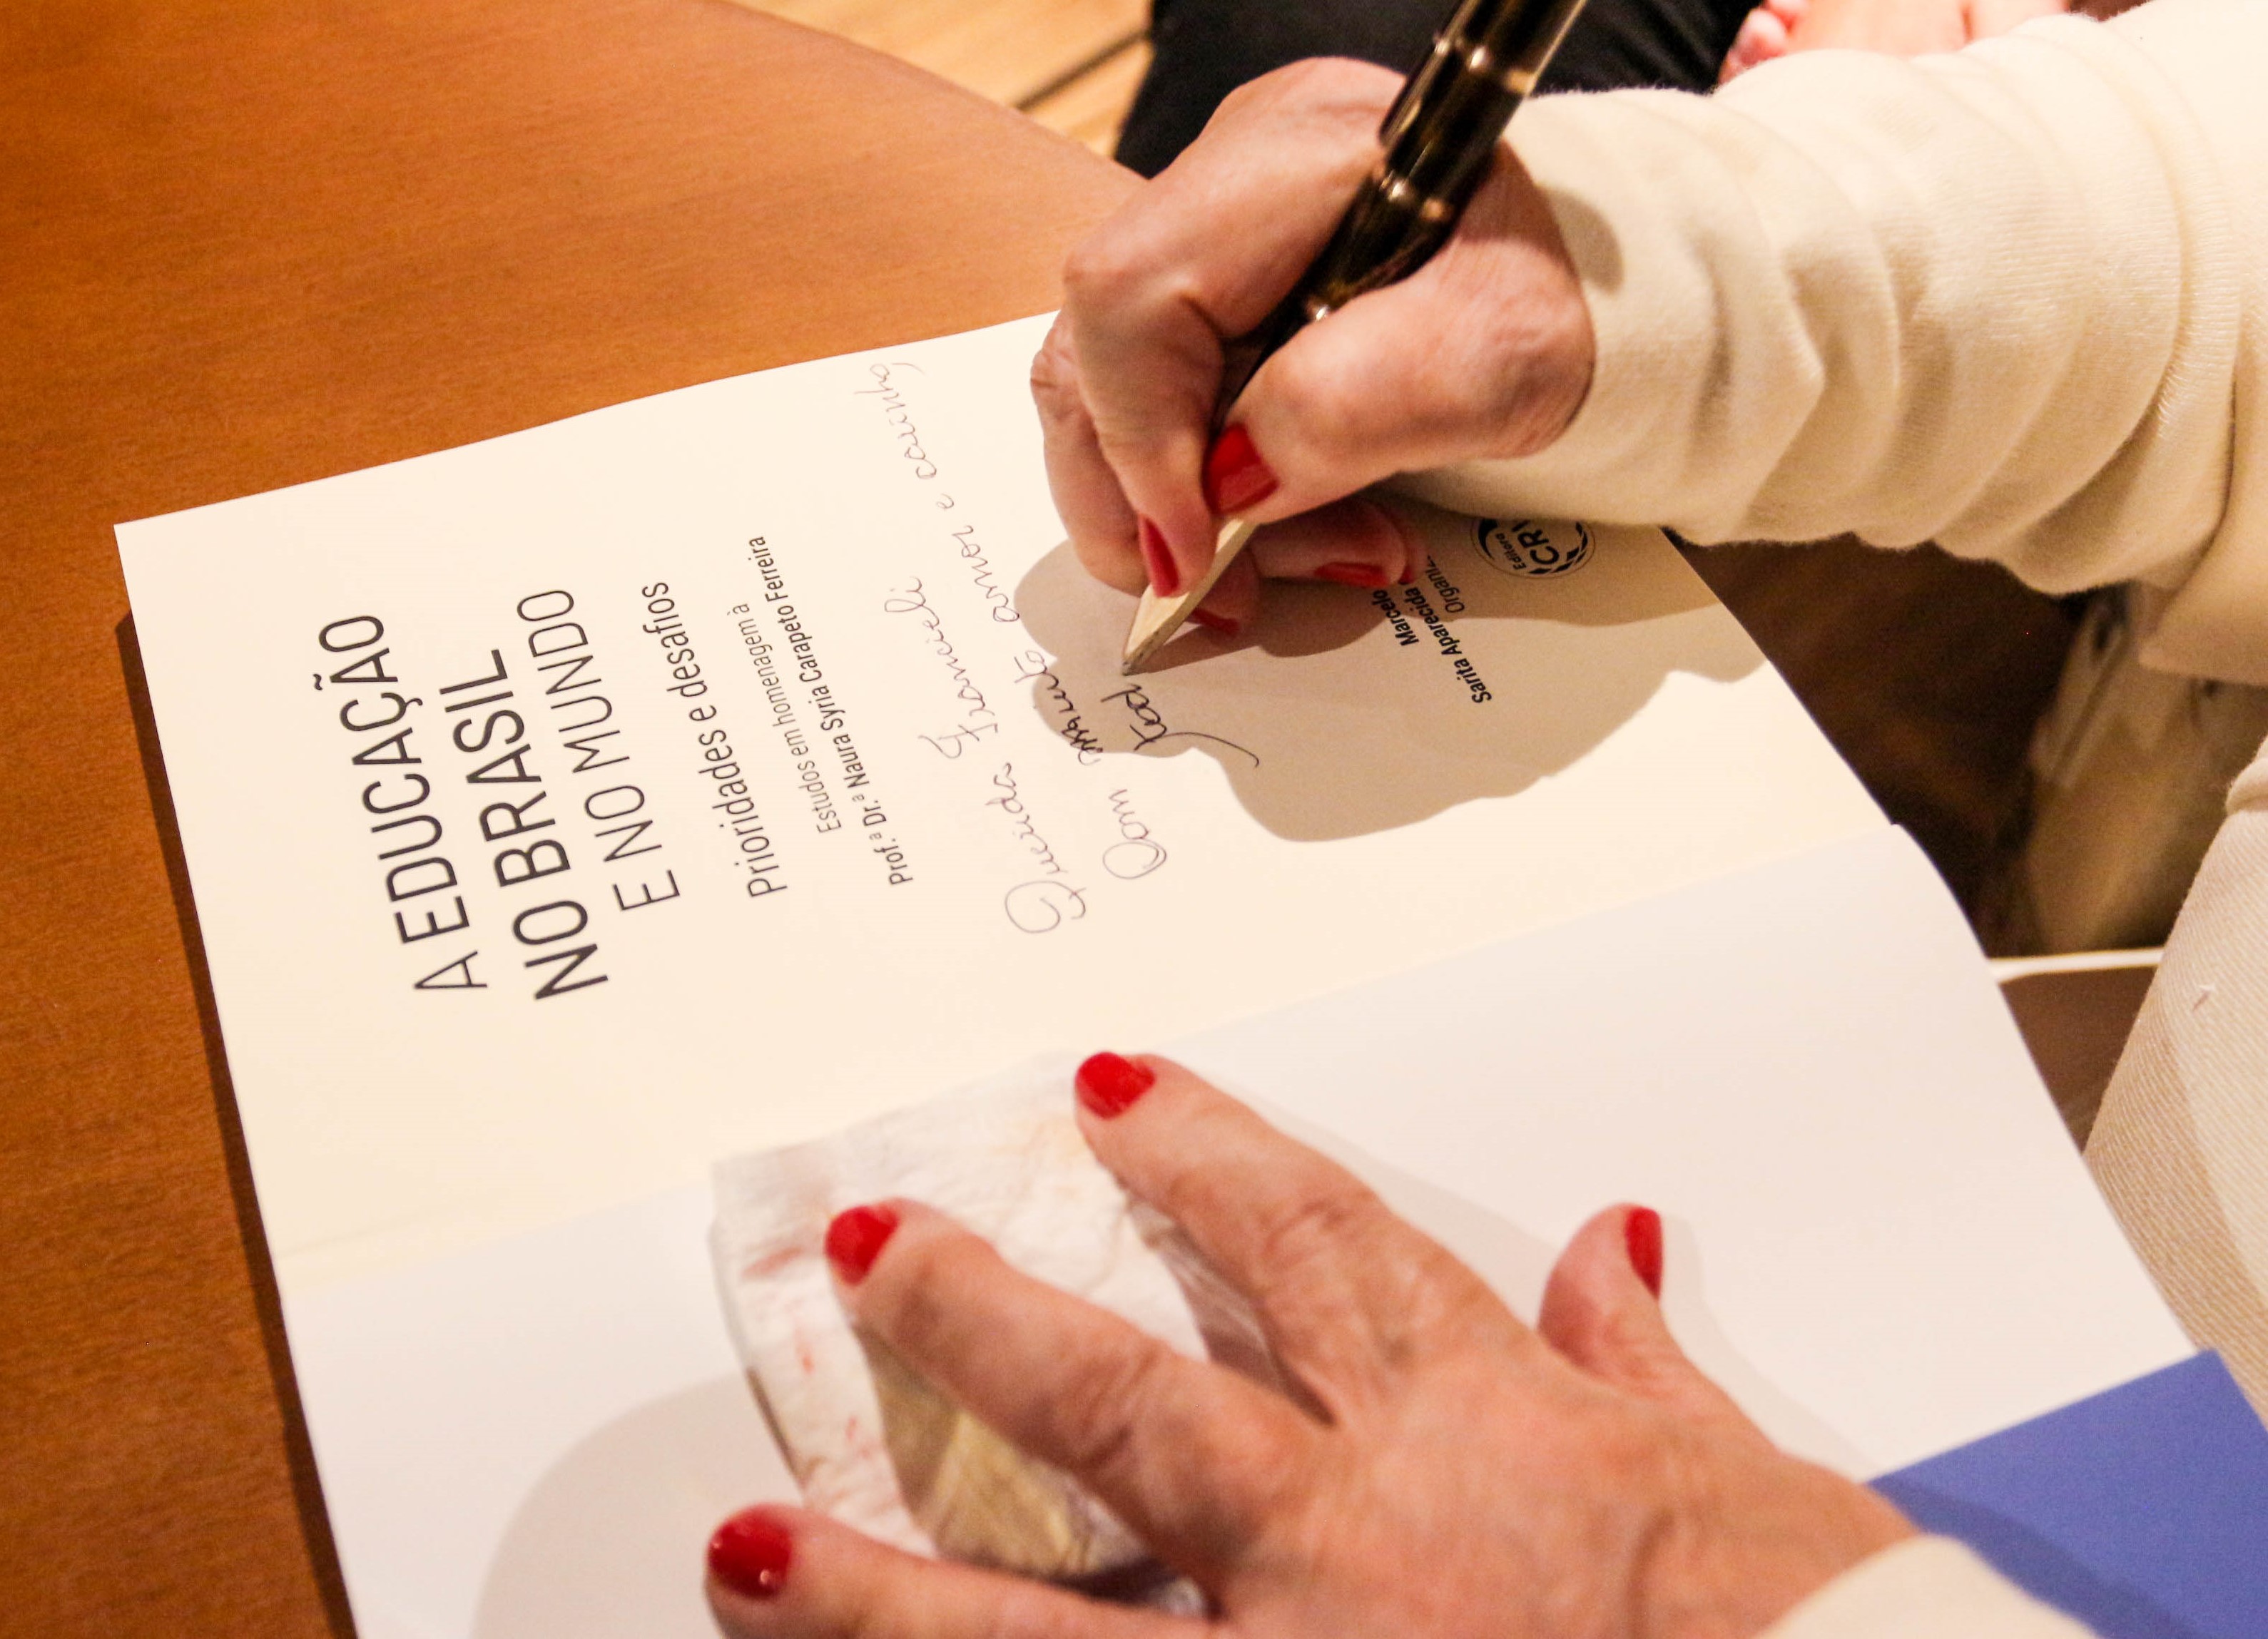 A EDUCAÇÃO
NO BRASIL
E NO MUNDO
Prioridades e desafios
Estudos em homenagem à
Prof.ª Dr.ª Naura Syria Carapeto Ferreira
Querida Francieli
Com muito amor e carinho
Marcelo
Sarita Aparecida
Organiz
Editora
CRV